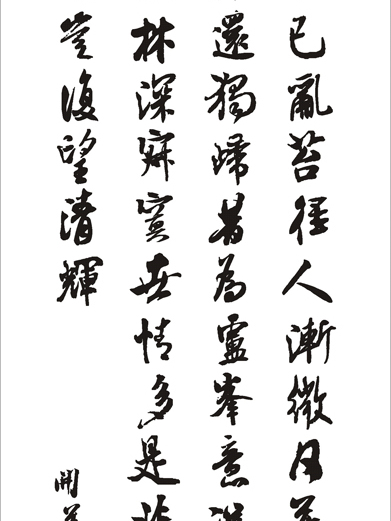 已亂苔徑人漸微月
還獨歸昔為靈峯意
林深寂寞世情多是
豈復望清輝
開